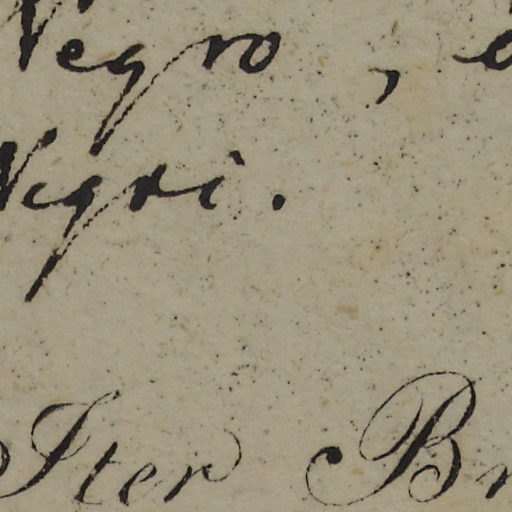 Negro,
Negri.
Iter